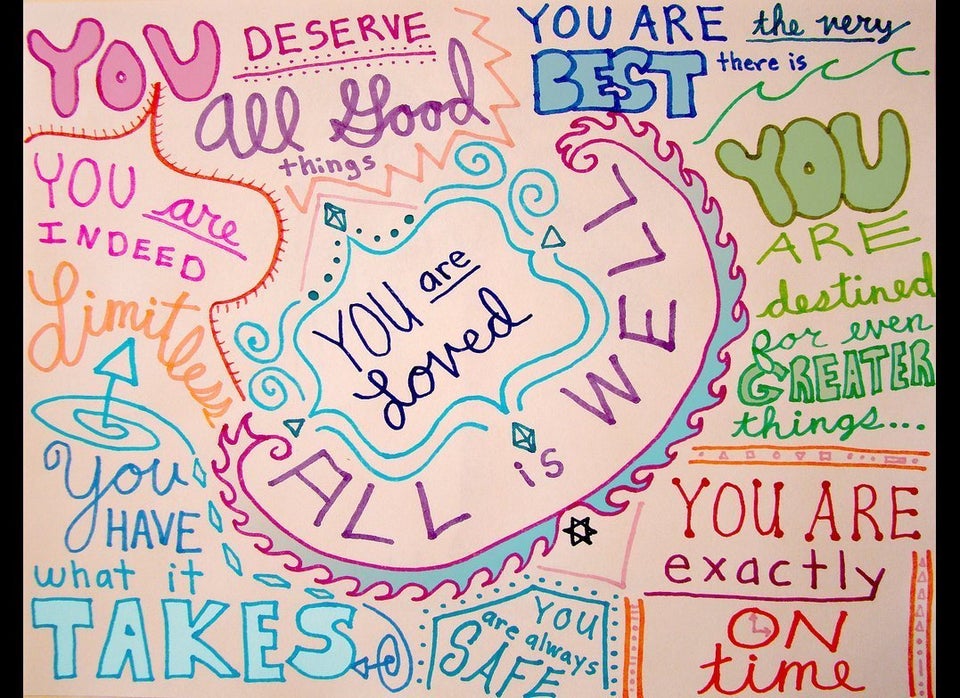 YOU DESERVE
all Good
things
YOU ARE the very
BEST there is
YOU are
INDEED
Limitless
YOU
ARE
destined
for even
GREATER
things...
YOU are
Loved
ALL is WELL
You
HAVE
what it
TAKES
YOU
are always
SAFE
YOU ARE
exactly
ON
time